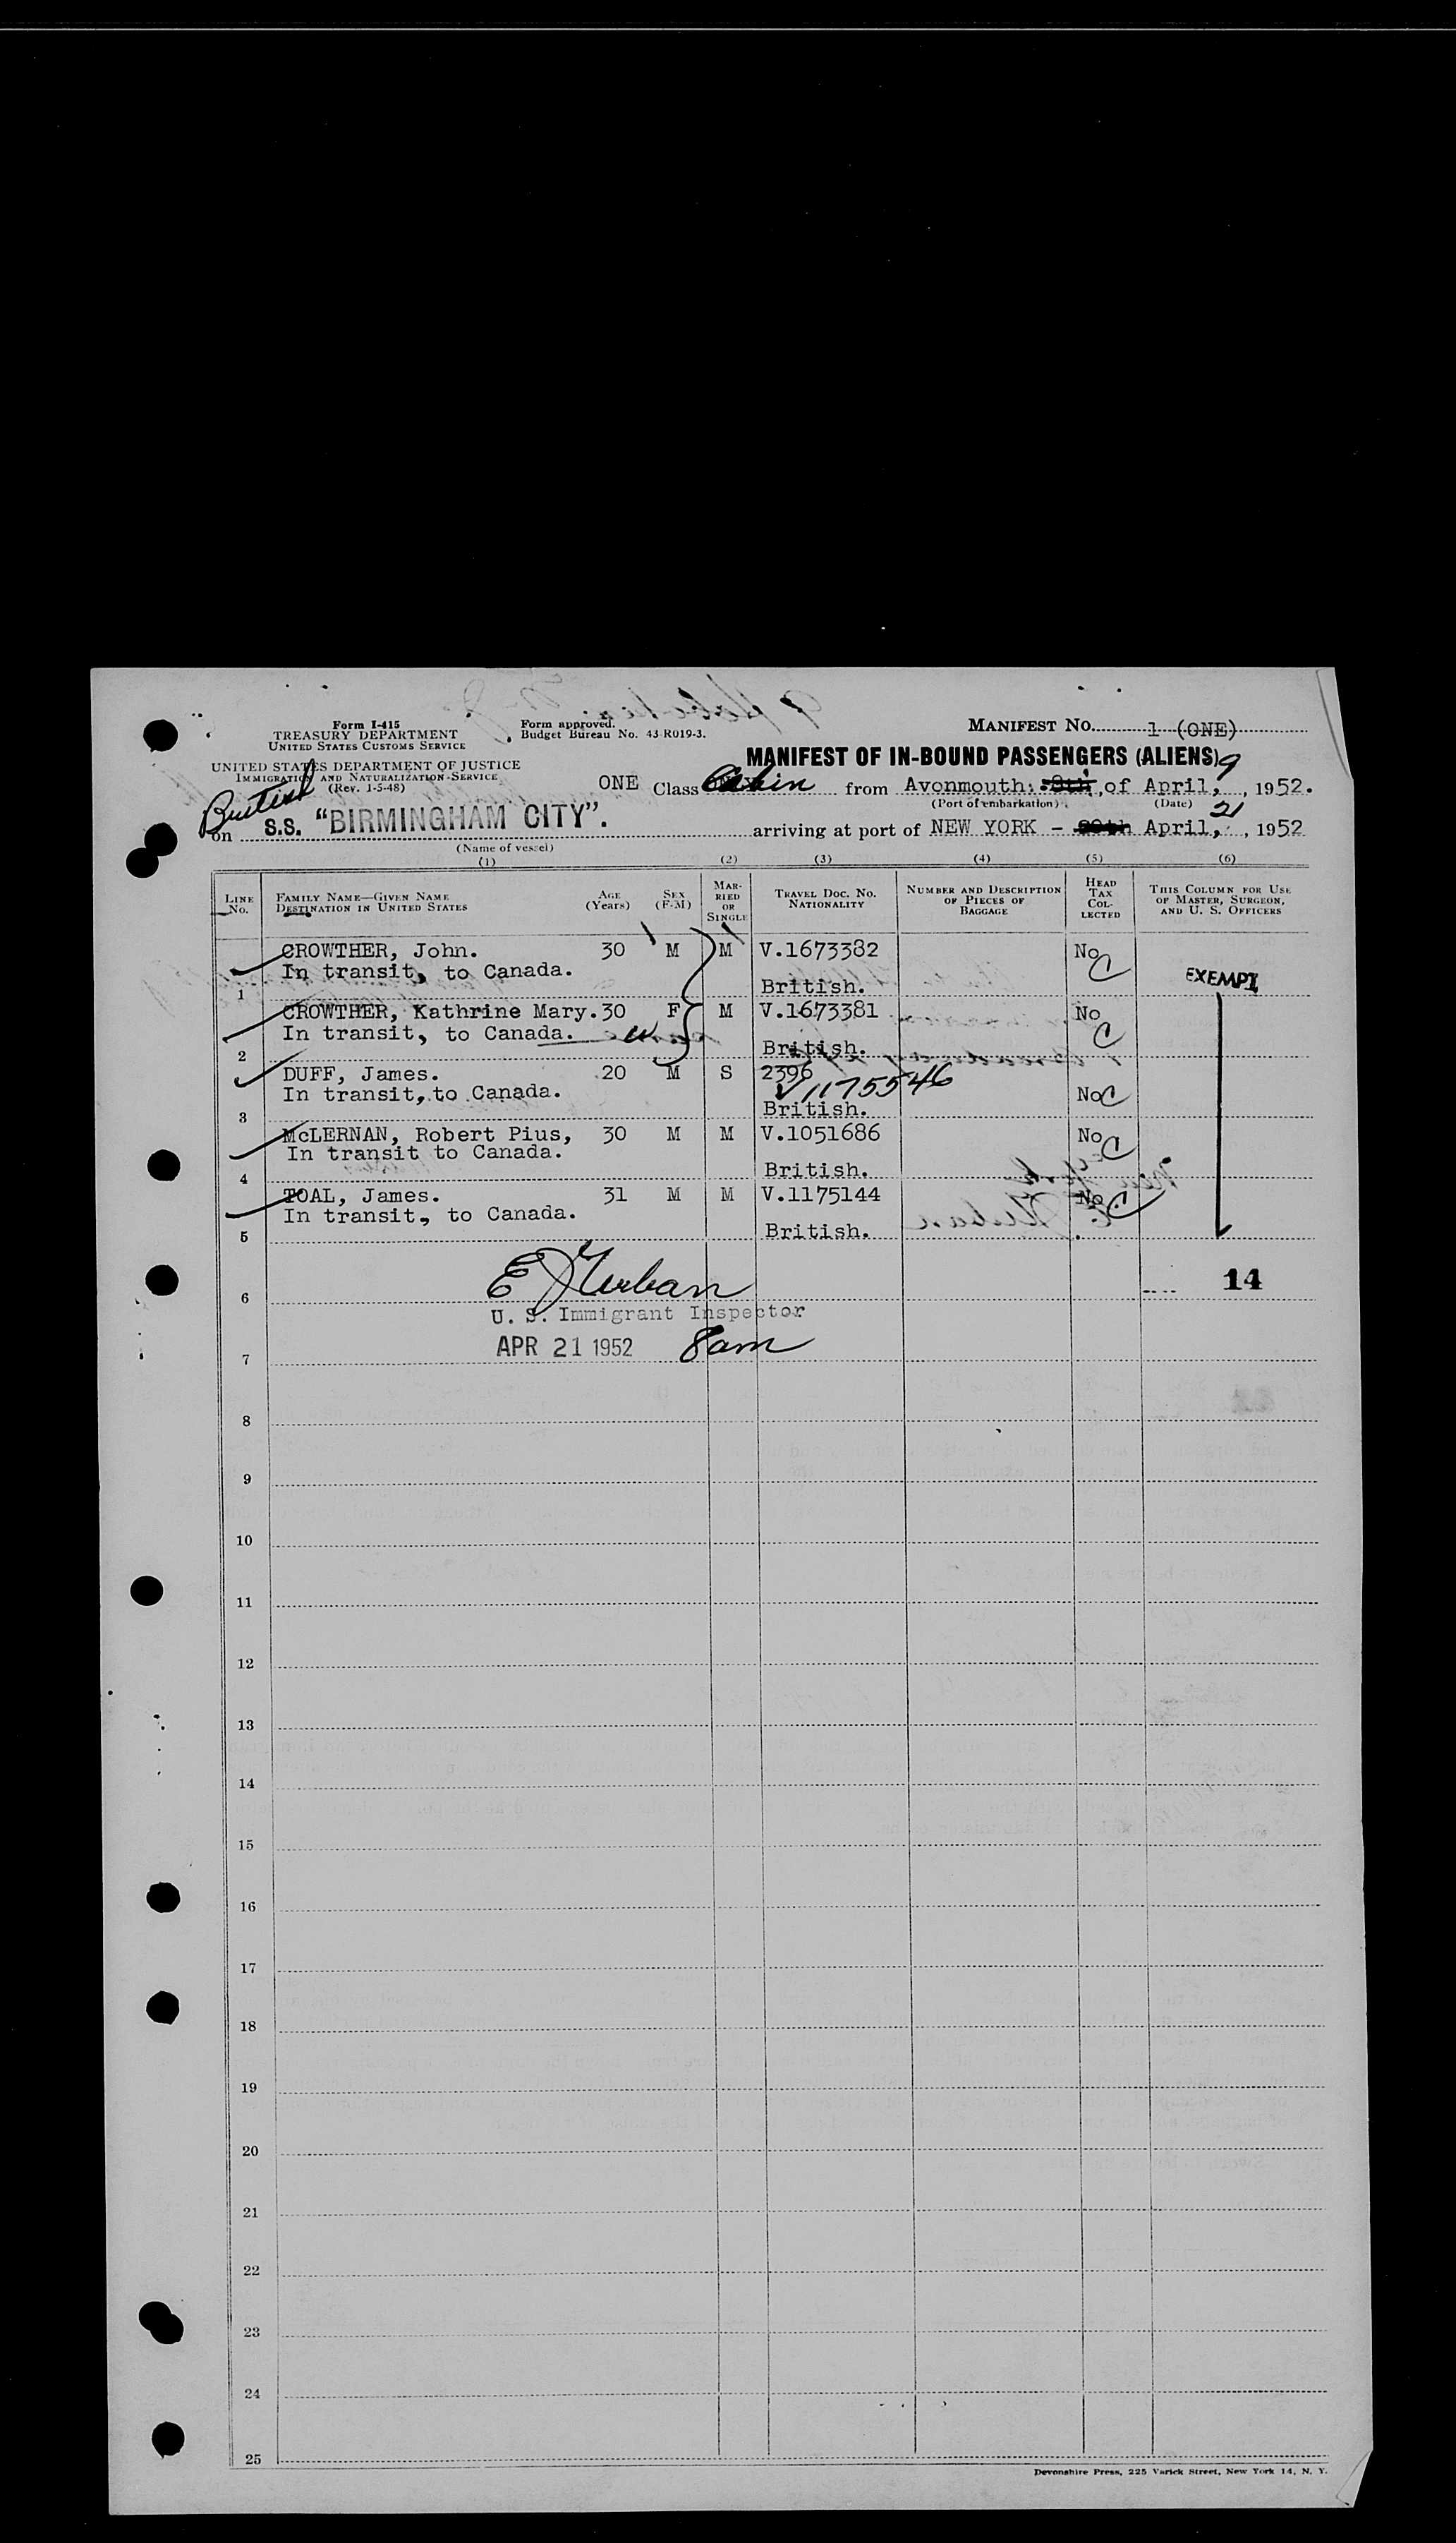 Form I-415
TREASURY DEPARTMENT
UNITED STATES CUSTOMS SERVICE
UNITED STATES DEPARTMENT OF JUSTICE
IMMIGRATION AND NATURALIZATION SERVICE
(Rev. 1-5-48)
Form approved.
Budget Bureau No. 43-R019-3.
MANIFEST NO. 1 (ONE)
MANIFEST OF IN-BOUND PASSENGERS (ALIENS)
British
ONE Class Cabin from Avonmouth. 8th, of April, 9, 1952.
(Port of embarkation) (Date)
on S.S. "BIRMINGHAM CITY". arriving at port of NEW YORK - 20th April, 21, 1952
(Name of vessel)
(1) (2) (3) (4) (5) (6)
LINE NO. FAMILY NAME—GIVEN NAME DESTINATION IN UNITED STATES AGE (Years) SEX (F-M) MARRIED OR SINGLE TRAVEL DOC. NO. NATIONALITY NUMBER AND DESCRIPTION OF PIECES OF BAGGAGE HEAD TAX COLLECTED THIS COLUMN FOR USE OF MASTER, SURGEON, AND U. S. OFFICERS
CROWTHER, John. 30 M M V.1673382 No C
In transit, to Canada.
1 British. EXEMPT
CROWTHER, Kathrine Mary. 30 F M V.1673381 No C
In transit, to Canada.
2 British.
DUFF, James. 20 M S 2396
In transit, to Canada. V1175546 No C
3 British.
McLERNAN, Robert Pius, 30 M M V.1051686 No C
In transit to Canada.
4 British.
TOAL, James. 31 M M V.1175144 No C
In transit, to Canada.
5 British.
6 14
U. S. Immigrant Inspector
7 APR 21 1952 8am
8
9
10
11
12
13
14
15
16
17
18
19
20
21
22
23
24
25
Devonshire Press, 225 Varick Street, New York 14, N. Y.